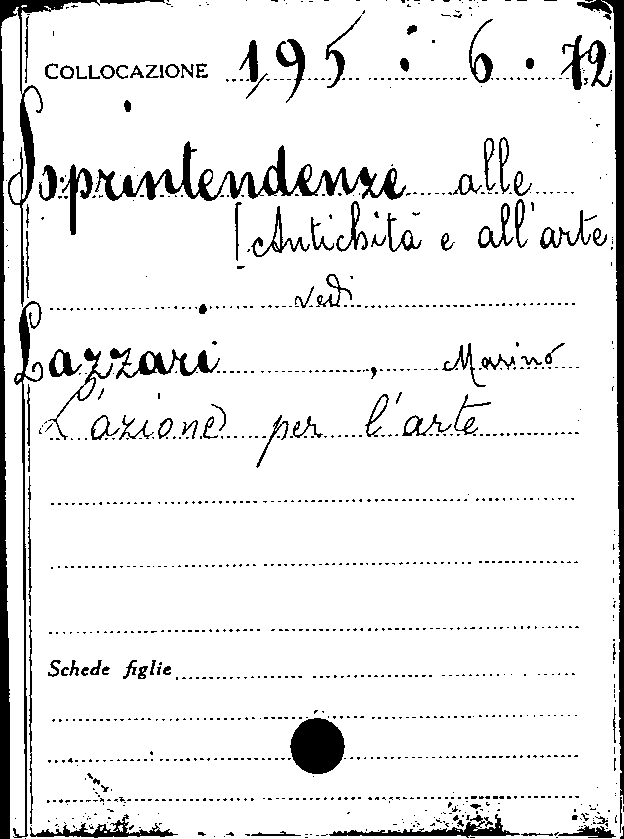 COLLOCAZIONE 195 : 6 . 72
Soprintendenze alle
[Antichità e all'arte
vedi
Lazzari , Marino
L'azione per l'arte
Schede figlie